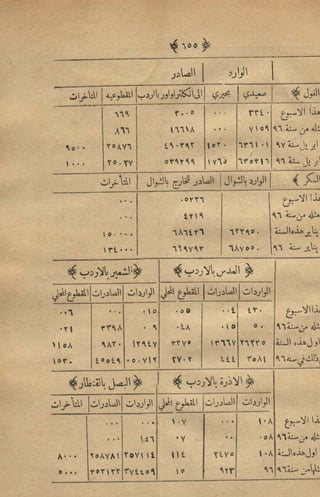 ﴿ ٦٥٥ ﴾
الوارد الصادر
الفول صعيدي بحيري الى انكلترا واوربا بالاردب المقطوعيه المتاخرات
هذا الاسبوع ٣٣٤٠ ٠٠٠ ٣٠٠٥ ٦٦٩
مثله من سنة ٩٦ ٧١٥٩ ٠٠٠ ١٦٦١٨ ٨٦٦
ابريل سنة ٩٧ ٦٣٦١٠١ ٤٥٢٠ ٤٩٠٣٩٢ ٢٥٨٧٦ ٩٥٠٠
ابريل سنة ٩٦ ٦٣٥٣٤٦ ١٧٦٥ ٥٣٩٢٩٩ ٢٥٠٣٧ ١٠٠٠
السكر الوارد بالشوال الصادر للخارج بالشوال المتأخرات
هذا الاسبوع ٠٥٣٢٦ ٠٠٠
مثله من سنة ٩٦ ٤٢١٩ ٠٠٠
يناير هذه السنة ٦٢٢٩٥٠ ٦٨٦٤٣٦ ١٥٠٠٠٠
يناير سنة ٩٦ ٦٨٧٥٥٠ ٦٦٩٧٩٣ ١٣٤٠٠٠
﴿ العدس بالاردب ﴾ ﴿ الشعير بالاردب ﴾
الواردات الصادرات المقطوع المحلي الواردات الصادرات المقطوع المحلي
هذا الاسبوع ٤٣٠ ٠٠٤ ٠٥٥ ٠١٥ ٠٠٠ ٠٠٦
مثله من سنة ٩٦ ٥٠ ٠١٥ ٠٤٨ ٠٩ ٣٣٩٨ ٠٢١
اول هذه السنة ٢٦٢٣٥ ١٣٦٦٧ ٣٢٧٥ ١٢٩٤٧ ٩٨٢٠ ١١٥٨
وذلك في سنة ٩٦ ٣٥٨٤ ٤٤٤ ٢٧٠٢ ٠٥٠٧١٢ ٤٥٥٤٩ ١٥٣٠
﴿ الاذرة بالاردب ﴾ ﴿ البصل بالقنطار ﴾
الواردات الصادرات المقطوع المحلي الواردات الصادرات المتأخرات
هذا الاسبوع ١٠٨ ٠٠٠ ١٠٧ ٠٠٠ ٠٠٠
مثله من سنة ٩٦ ٠٥٨ ٠٠ ٠٧ ١٤٦ ٠٠٠
اول هذه السنة ١٠٨ ٢٤٧٥ ١١٤ ٣٥٧١١٤ ٢٥٨٧٨٤ ٨٠٠٠
مثلها من سنة ٩٦ ٩٦ ٩٢٣ ١٥ ٣٧٤٤٥٩ ٣٥٢١٢٢ ٥٠٠٠